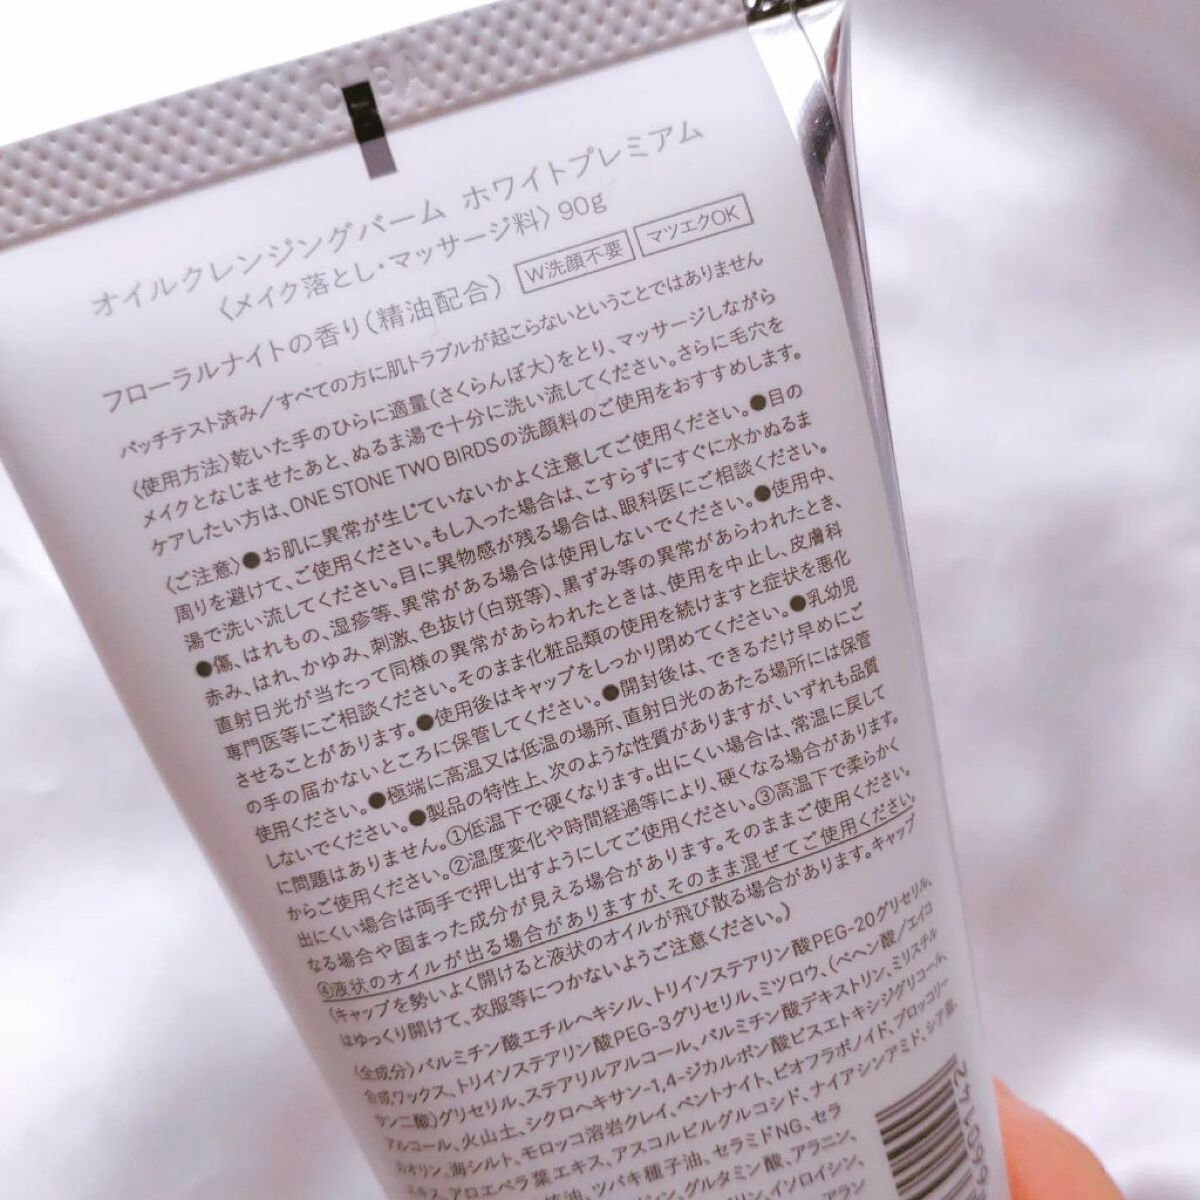 オイルクレンジングバーム ホワイトプレミアム
〈メイク落とし・マッサージ料〉90g
フローラルナイトの香り(精油配合) W洗顔不要 マツエクOK
パッチテスト済み/すべての方に肌トラブルが起こらないということではありません
〈使用方法〉乾いた手のひらに適量(さくらんぼ大)をとり、マッサージしながら
メイクとなじませたあと、ぬるま湯で十分に洗い流してください。さらに毛穴を
ケアしたい方は、ONE STONE TWO BIRDSの洗顔料のご使用をおすすめします。
〈ご注意〉●お肌に異常が生じていないかよく注意してご使用ください。●目の
周りを避けて、ご使用ください。もし入った場合は、こすらずにすぐに水かぬるま
湯で洗い流してください。目に異物感が残る場合は、眼科医にご相談ください。
●傷、はれもの、湿疹等、異常がある場合は使用しないでください。●使用中、
赤み、はれ、かゆみ、刺激、色抜け(白斑等)、黒ずみ等の異常があらわれたとき、
直射日光が当たって同様の異常があらわれたときは、使用を中止し、皮膚科
専門医等にご相談ください。そのまま化粧品類の使用を続けますと症状を悪化
させることがあります。●使用後はキャップをしっかり閉めてください。●乳幼児
の手の届かないところに保管してください。●開封後は、できるだけ早めにご
使用ください。●極端に高温又は低温の場所、直射日光のあたる場所には保管
しないでください。●製品の特性上、次のような性質がありますが、いずれも品質
に問題はありません。①低温下で硬くなります。出にくい場合は、常温に戻して
からご使用ください。②温度変化や時間経過等により、硬くなる場合があります。
出にくい場合は両手で押し出すようにしてご使用ください。③高温下で柔らかく
なる場合や固まった成分が見える場合があります。そのままご使用ください。
④液状のオイルが出る場合がありますが、そのまま混ぜてご使用ください。
(キャップを勢いよく開けると液状のオイルが飛び散る場合があります。キャップ
はゆっくり開けて、衣服等につかないようご注意ください。)
〈全成分〉パルミチン酸エチルヘキシル、トリイソステアリン酸PEG-20グリセリル、
合成ワックス、トリイソステアリン酸PEG-3グリセリル、ミツロウ、(ベヘン酸/エイコ
サン二酸)グリセリル、ステアリルアルコール、パルミチン酸デキストリン、ミリスチル
アルコール、火山土、シクロヘキサン-1,4-ジカルボン酸ビスエトキシジグリコール、
カオリン、海シルト、モロッコ溶岩クレイ、ベントナイト、ビオフラボノイド、ブロッコリー
エキス、アロエベラ葉エキス、アスコルビルグルコシド、ナイアシンアミド、シア脂、
ツバキ種子油、セラミドNG、セラ
グルタミン酸、アラニン、
イソロイシン、